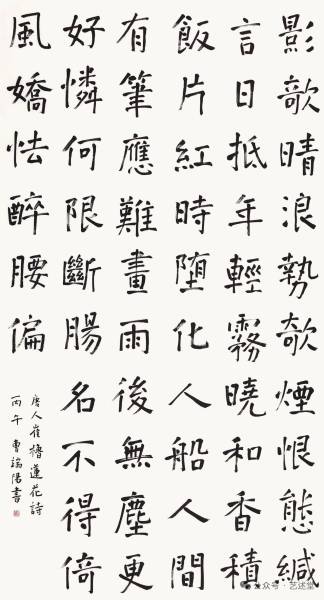 影欹晴浪勢欹煙恨態緘
言日抵年輕霧曉和香積
飯片紅時堕化人船人間
有筆應難畫雨後無塵更
好憐何限斷腸名不得倚
風嬌怯醉腰偏
唐人崔櫓蓮花詩
丙午 曹端陽書
公众号 · 艺述堂